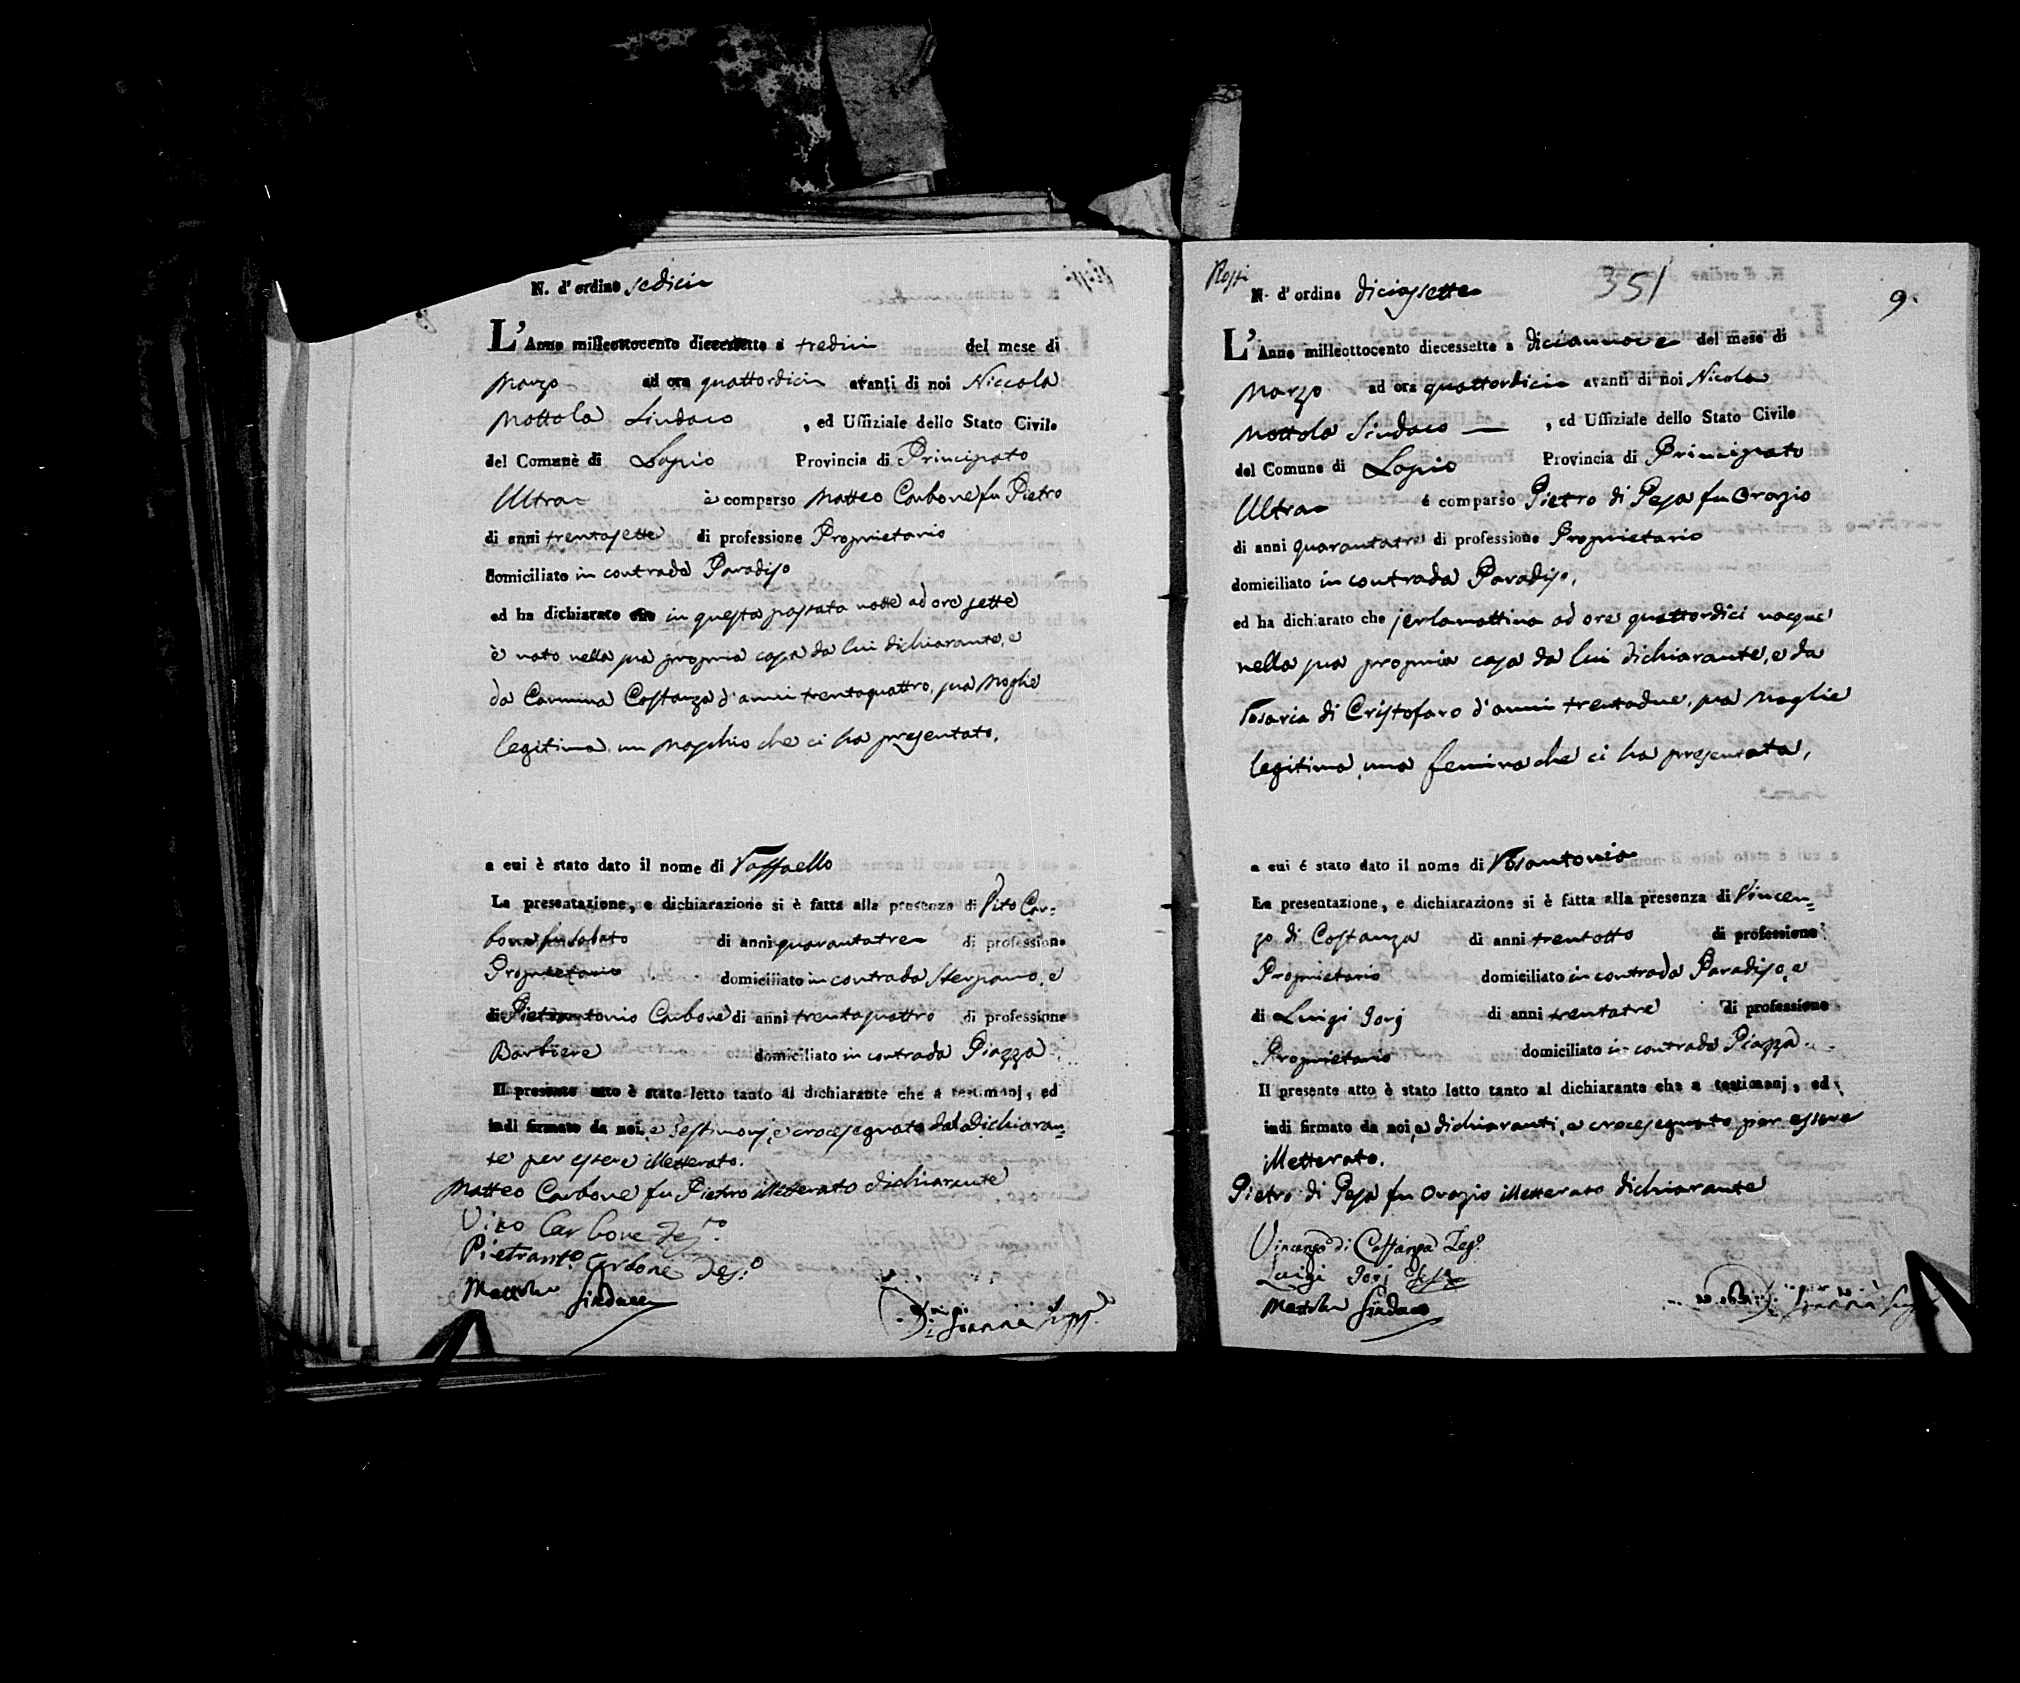 N. d'ordine sedici
L'Anno milleottocento diecessette a tredici del mese di
Marzo ad ora quattordici avanti di noi Niccola
Mottola Sindaco , ed Uffiziale dello Stato Civile
del Comune di Lapio Provincia di Principato
Ultra è comparso Matteo Carbone fu Pietro
di anni trentasette di professione Proprietario
domiciliato in contrada Paradiso
ed ha dichiarato che in questa passata notte ad ore sette
è nato nella sua propria casa da lui dichiarante, e
da Carmina Costanza d'anni trentaquattro, sua Moglie
legitima un Maschio che ci ha presentato,
a cui è stato dato il nome di Raffaello
La presentazione, e dichiarazione si è fatta alla presenza di Vito Car=
bone fu Sabato di anni quarantatre di professione
Proprietario domiciliato in contrada , e
di Pietrantonio Carbone di anni trentaquattro di professione
Barbiere domiciliato in contrada Piazza
Il presente atto è stato letto tanto al dichiarante che a testimonj, ed
indi firmato da noi, e Testimonj, e crocesegnato dal Dichiaran=
te per essere illetterato.
Matteo Carbone fu Pietro illetterato dichiarante
Vito Carbone Tes.to
Pietrant.o Carbone Tes.o
Mottola Sindaco
Rossi
N. d'ordine diciassette 351 9.
L'Anno milleottocento diecessette a diciannove del mese di
Marzo ad ora quattordici avanti di noi Nicola
Mottola Sindaco , ed Uffiziale dello Stato Civile
del Comune di Lapio Provincia di Principato
Ultra é comparso Pietro di Pesa fu Orazio
di anni quarantatre di professione Proprietario
domiciliato in contrada Paradiso,
ed ha dichiarato che jerlamattina ad ore quattordici nacque
nella sua propria casa da lui dichiarante, e da
Rosaria di Cristofaro d'anni trentadue, sua Moglie
legitima, una femina che ci ha presentata,
a cui é stato dato il nome di Rosantonia
La presentazione, e dichiarazione si è fatta alla presenza di Vincen=
zo di Costanza di anni trentotto di professione
Proprietario domiciliato in contrada Paradiso, e
di Luigi Jorj di anni trentatre di professione
Proprietario domiciliato in contrada Piazza
Il presente atto è stato letto tanto al dichiarante che a testimonj, ed
indi firmato da noi, e dichiaranti, e crocesegnato per essere
illetterato.
Pietro di Pesa fu Orazio illetterato dichiarante
Vincenzo di Costanza Tes.o
Luigi Jorj
Mottola Sindaco